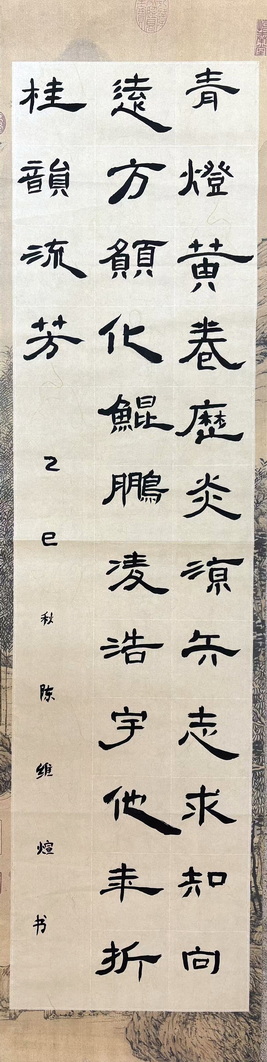 青燈黄卷歷炎凉矢志求知向
遠方願化鯤鵬凌浩宇他年折
桂韻流芳
乙巳秋陈维煊书